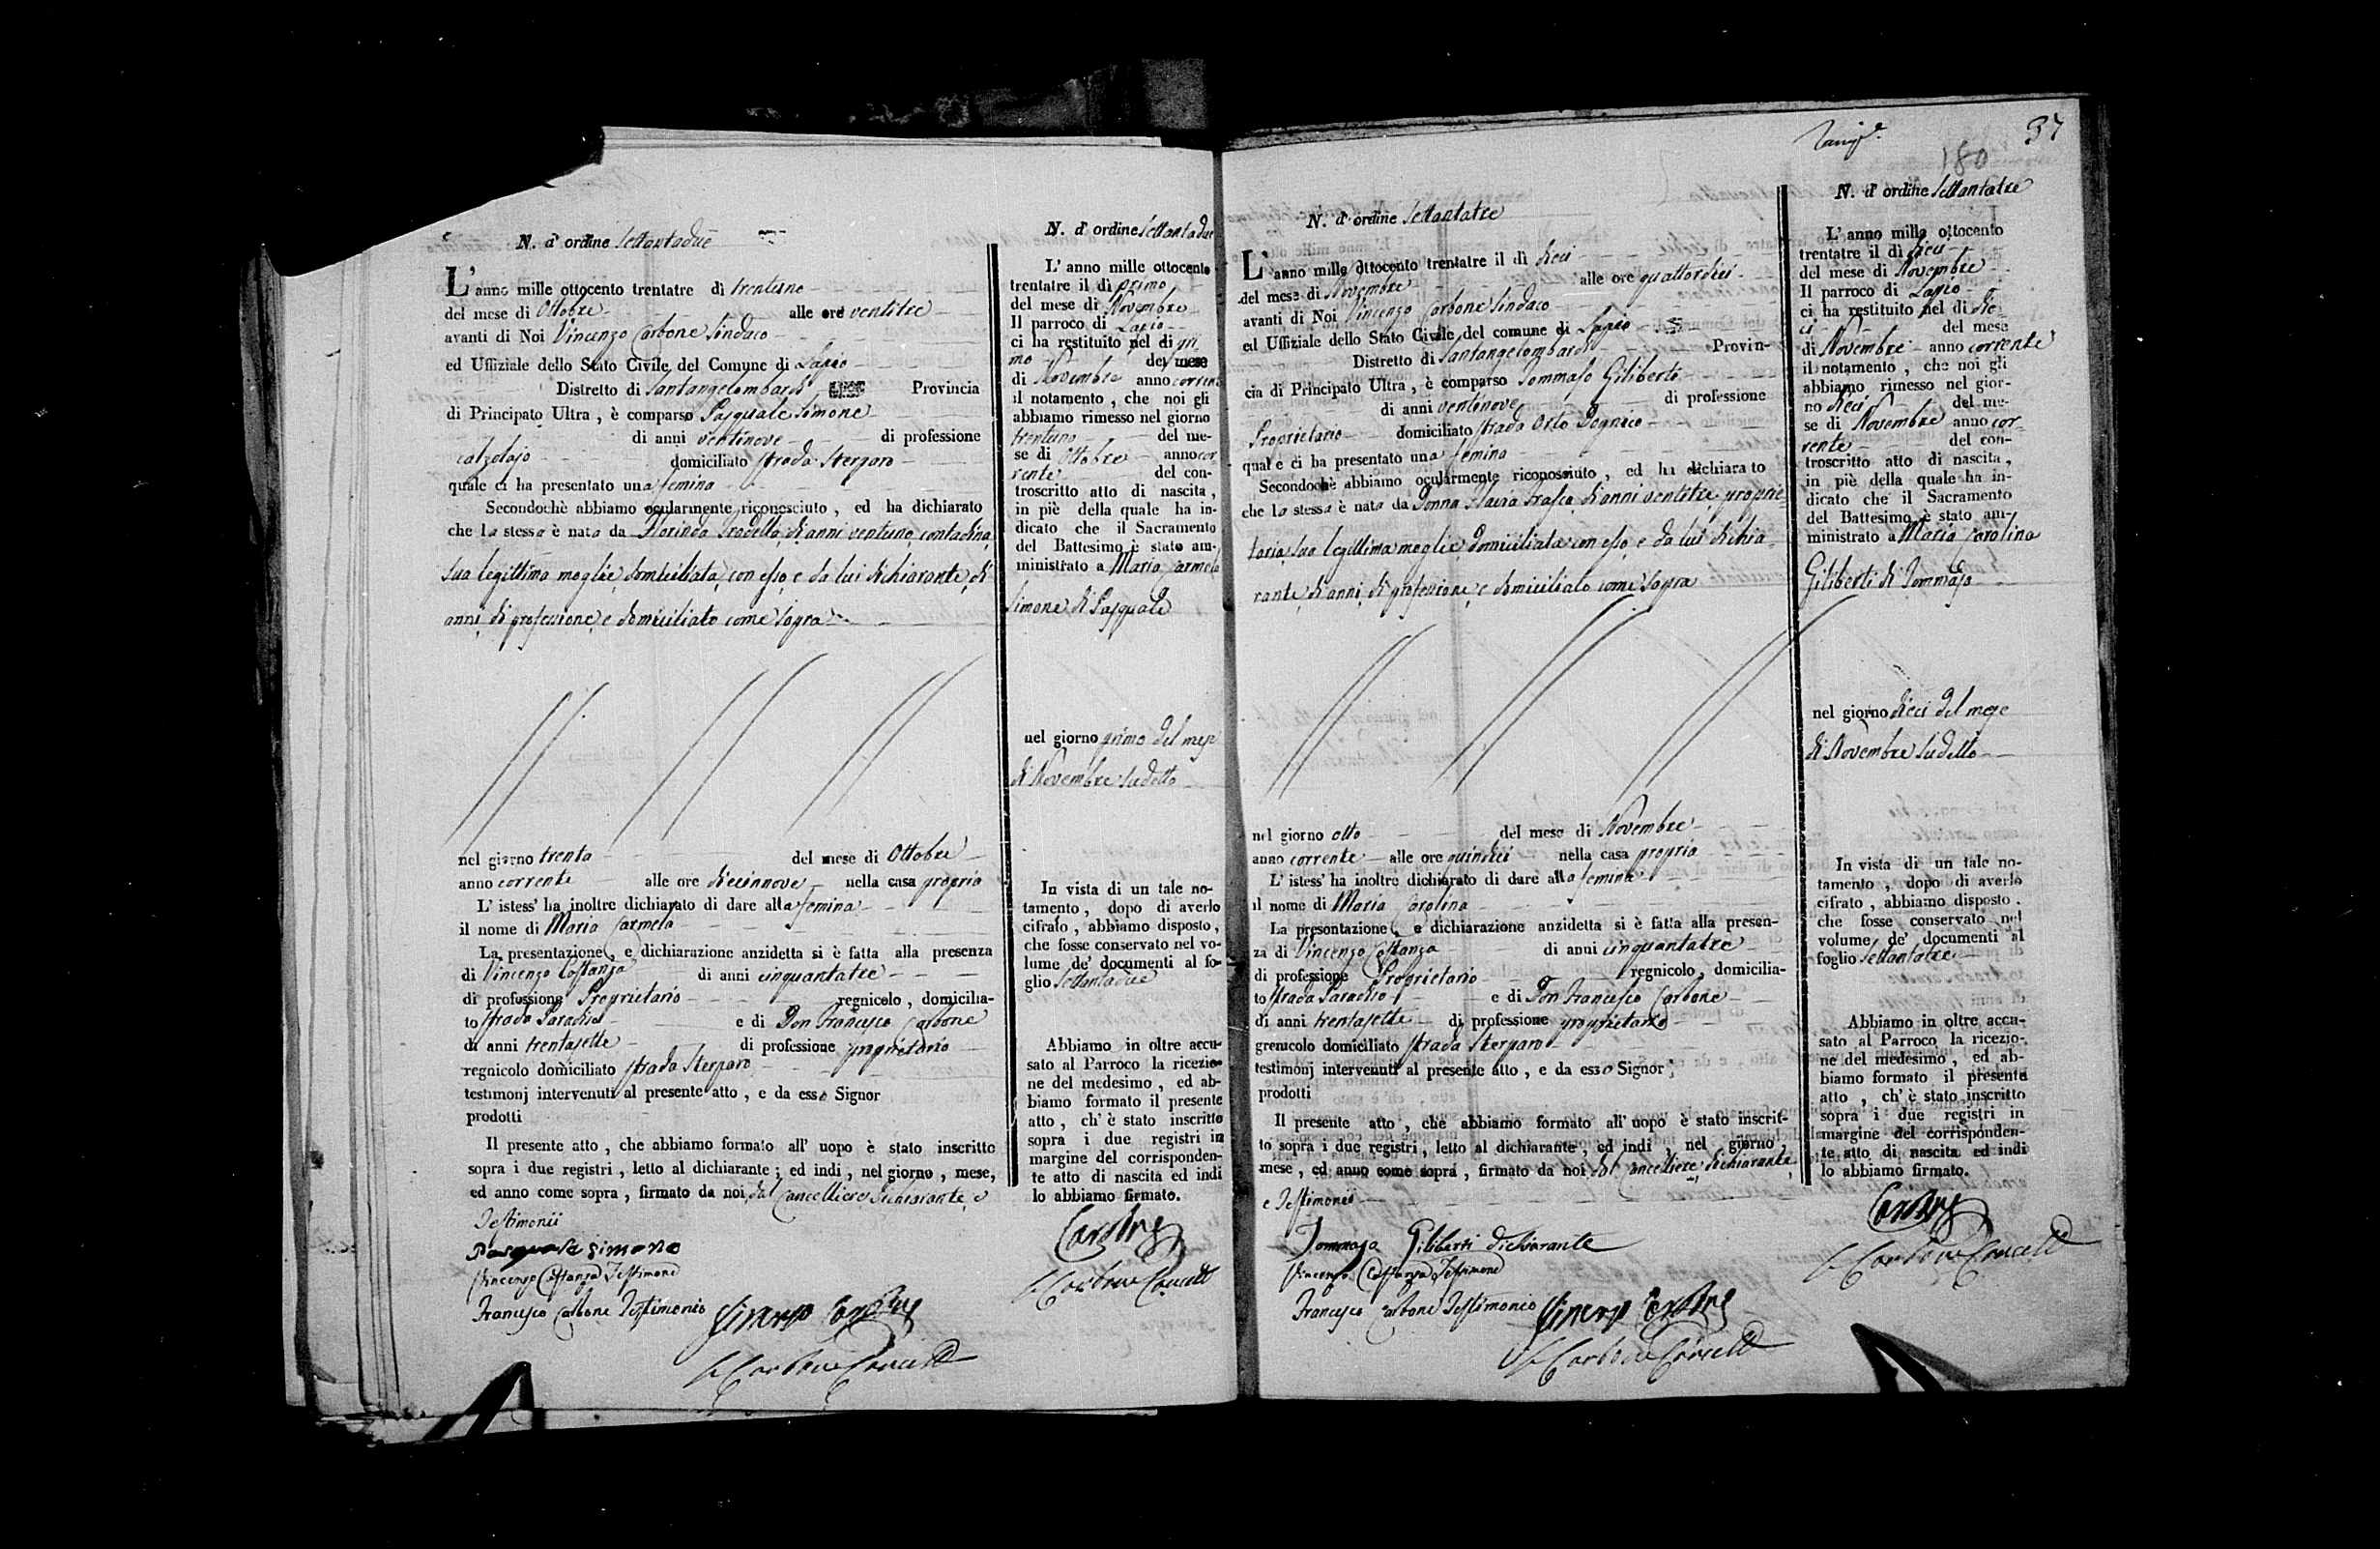 N. d' ordine Settantadue
L' anno mille ottocento trentatre dì trentuno
del mese di Ottobre alle ore ventitre
avanti di Noi Vincenzo Carbone Sindaco
ed Uffiziale dello Stato Civile del Comune di Lapio
Distretto di Santangelombardi Provincia
di Principato Ultra , è comparso Pasquale Simone
di anni ventinove di professione
calzolajo domiciliato strada Sterparo
quale ci ha presentato una femina
Secondochè abbiamo ocularmente riconosciuto , ed ha dichiarato
che la stessa è nata da Florinda di anni ventuno, contadina,
sua legittima moglie domiciliata, con esso, e da lui dichiarante, di
anni, di professione, e domiciliato come sopra
nel giorno trenta del mese di Ottobre
anno corrente alle ore diecinnove nella casa propria
L' istess' ha inoltre dichiarato di dare alla femina
il nome di Maria Carmela
La presentazione , e dichiarazione anzidetta si è fatta alla presenza
di Vincenzo Costanza di anni cinquantatre
di professione Proprietario regnicolo , domicilia-
to strada Paradiso e di Don Francesco Carbone
di anni trentasette di professione proprietario
regnicolo domiciliato strada Sterparo
testimonj intervenuti al presente atto , e da esso Signor
prodotti
Il presente atto , che abbiamo formato all' uopo è stato inscritto
sopra i due registri , letto al dichiarante ; ed indi , nel giorno , mese,
ed anno come sopra , firmato da noi, dal Cancelliere, dichiarante, e
Testimonii
Pasquale Simone
Vincenzo Costanza Testimone
Francesco Carbone Testimonio
Vincenzo Carbone
Carbone Cancell
N. d' ordine Settantadue
L' anno mille ottocento
trentatre il dì primo
del mese di Novembre
Il parroco di Lapio
ci ha restituito nel di pri
mo del mese
di Novembre anno corrente
il notamento , che noi gli
abbiamo rimesso nel giorno
trentuno del me-
se di Ottobre anno cor
rente del con-
troscritto atto di nascita ,
in piè della quale ha in-
dicato che il Sacramento
del Battesimo è stato am-
ministrato a Maria Carmela
Simone di Pasquale
nel giorno primo del mese
di Novembre sudetto
In vista di un tale no-
tamento , dopo di averlo
cifrato , abbiamo disposto ,
che fosse conservato nel vo-
lume de' documenti al fo-
glio Settantadue
Abbiamo in oltre accu-
sato al Parroco la ricezio-
ne del medesimo , ed ab-
biamo formato il presente
atto , ch' è stato inscritto
sopra i due registri in
margine del corrisponden-
te atto di nascita ed indi
lo abbiamo firmato.
Carbone
Carbone Cancell
37
180
N. d' ordine Settantatre
L' anno mille ottocento trentatre il dì dieci
del mese di Novembre alle ore quattordici
avanti di Noi Vincenzo Carbone Sindaco
ed Uffiziale dello Stato Civile del comune di Lapio
Distretto di Santangelombardi Provin-
cia di Principato Ultra , è comparso Tommaso Giliberti
di anni ventinove di professione
Proprietario domiciliato strada Orto
quale ci ha presentato una femina
Secondochè abbiamo ocularmente riconosciuto , ed ha dichiarato
che la stessa è nata da Donna di anni ventitre, proprie-
taria, sua legittima moglie, domiciliata con esso, e da lui dichia-
rante, di anni, di professione, e domiciliato come sopra
nel giorno otto del mese di Novembre
anno corrente alle ore quindici nella casa propria
L' istess' ha inoltre dichiarato di dare alla femina
il nome di Maria Carolina
La presontazione , e dichiarazione anzidetta si è fatta alla presen-
za di Vincenzo Costanza di anni cinquantatre
di professione Proprietario regnicolo , domicilia-
to strada Paradiso e di Don Francesco Carbone
di anni trentasette di professione proprietario
gremcolo domiciliato strada Sterparo
testimonj intervenuti al presente atto , e da esso Signor
prodotti
Il presente atto , che abbiamo formato all' uopo è stato inscrit-
to sopra i due registri , letto al dichiarante , ed indi nel giorno ,
mese , ed anno come sopra , firmato da noi dal Cancelliere, dichiarante,
e Testimonii
Tommaso Giliberti dichiarante
Vincenzo Costanza Testimone
Francesco Carbone Testimonio
Vincenzo Carbone
Carbone Cancell
N. d' ordine Settantatre
L' anno mille ottocento
trentatre il dì dieci
del mese di Novembre
Il parroco di Lapio
ci ha restituito nel di die-
ci del mese
di Novembre anno corrente
il notamento , che noi gli
abbiamo rimesso nel gior-
no dieci del me-
se di Novembre anno cor-
rente del con-
troscritto atto di nascita ,
in piè della quale ha in-
dicato che il Sacramento
del Battesimo è stato am-
ministrato a Maria Carolina
Giliberti di Tommaso
nel giorno dieci del mese
di Novembre sudetto
In vista di un tale no-
tamento , dopo di averlo
cifrato , abbiamo disposto .
che fosse conservato nel
volume de' documenti al
foglio settantatre
Abbiamo in oltre accu-
sato al Parroco la ricezio-
ne del medesimo , ed ab-
biamo formato il presente
atto , ch' è stato inscritto
sopra i due registri in
margine del corrisponden-
te atto di nascita ed indi
lo abbiamo firmato.
Carbone
Carbone Cancell